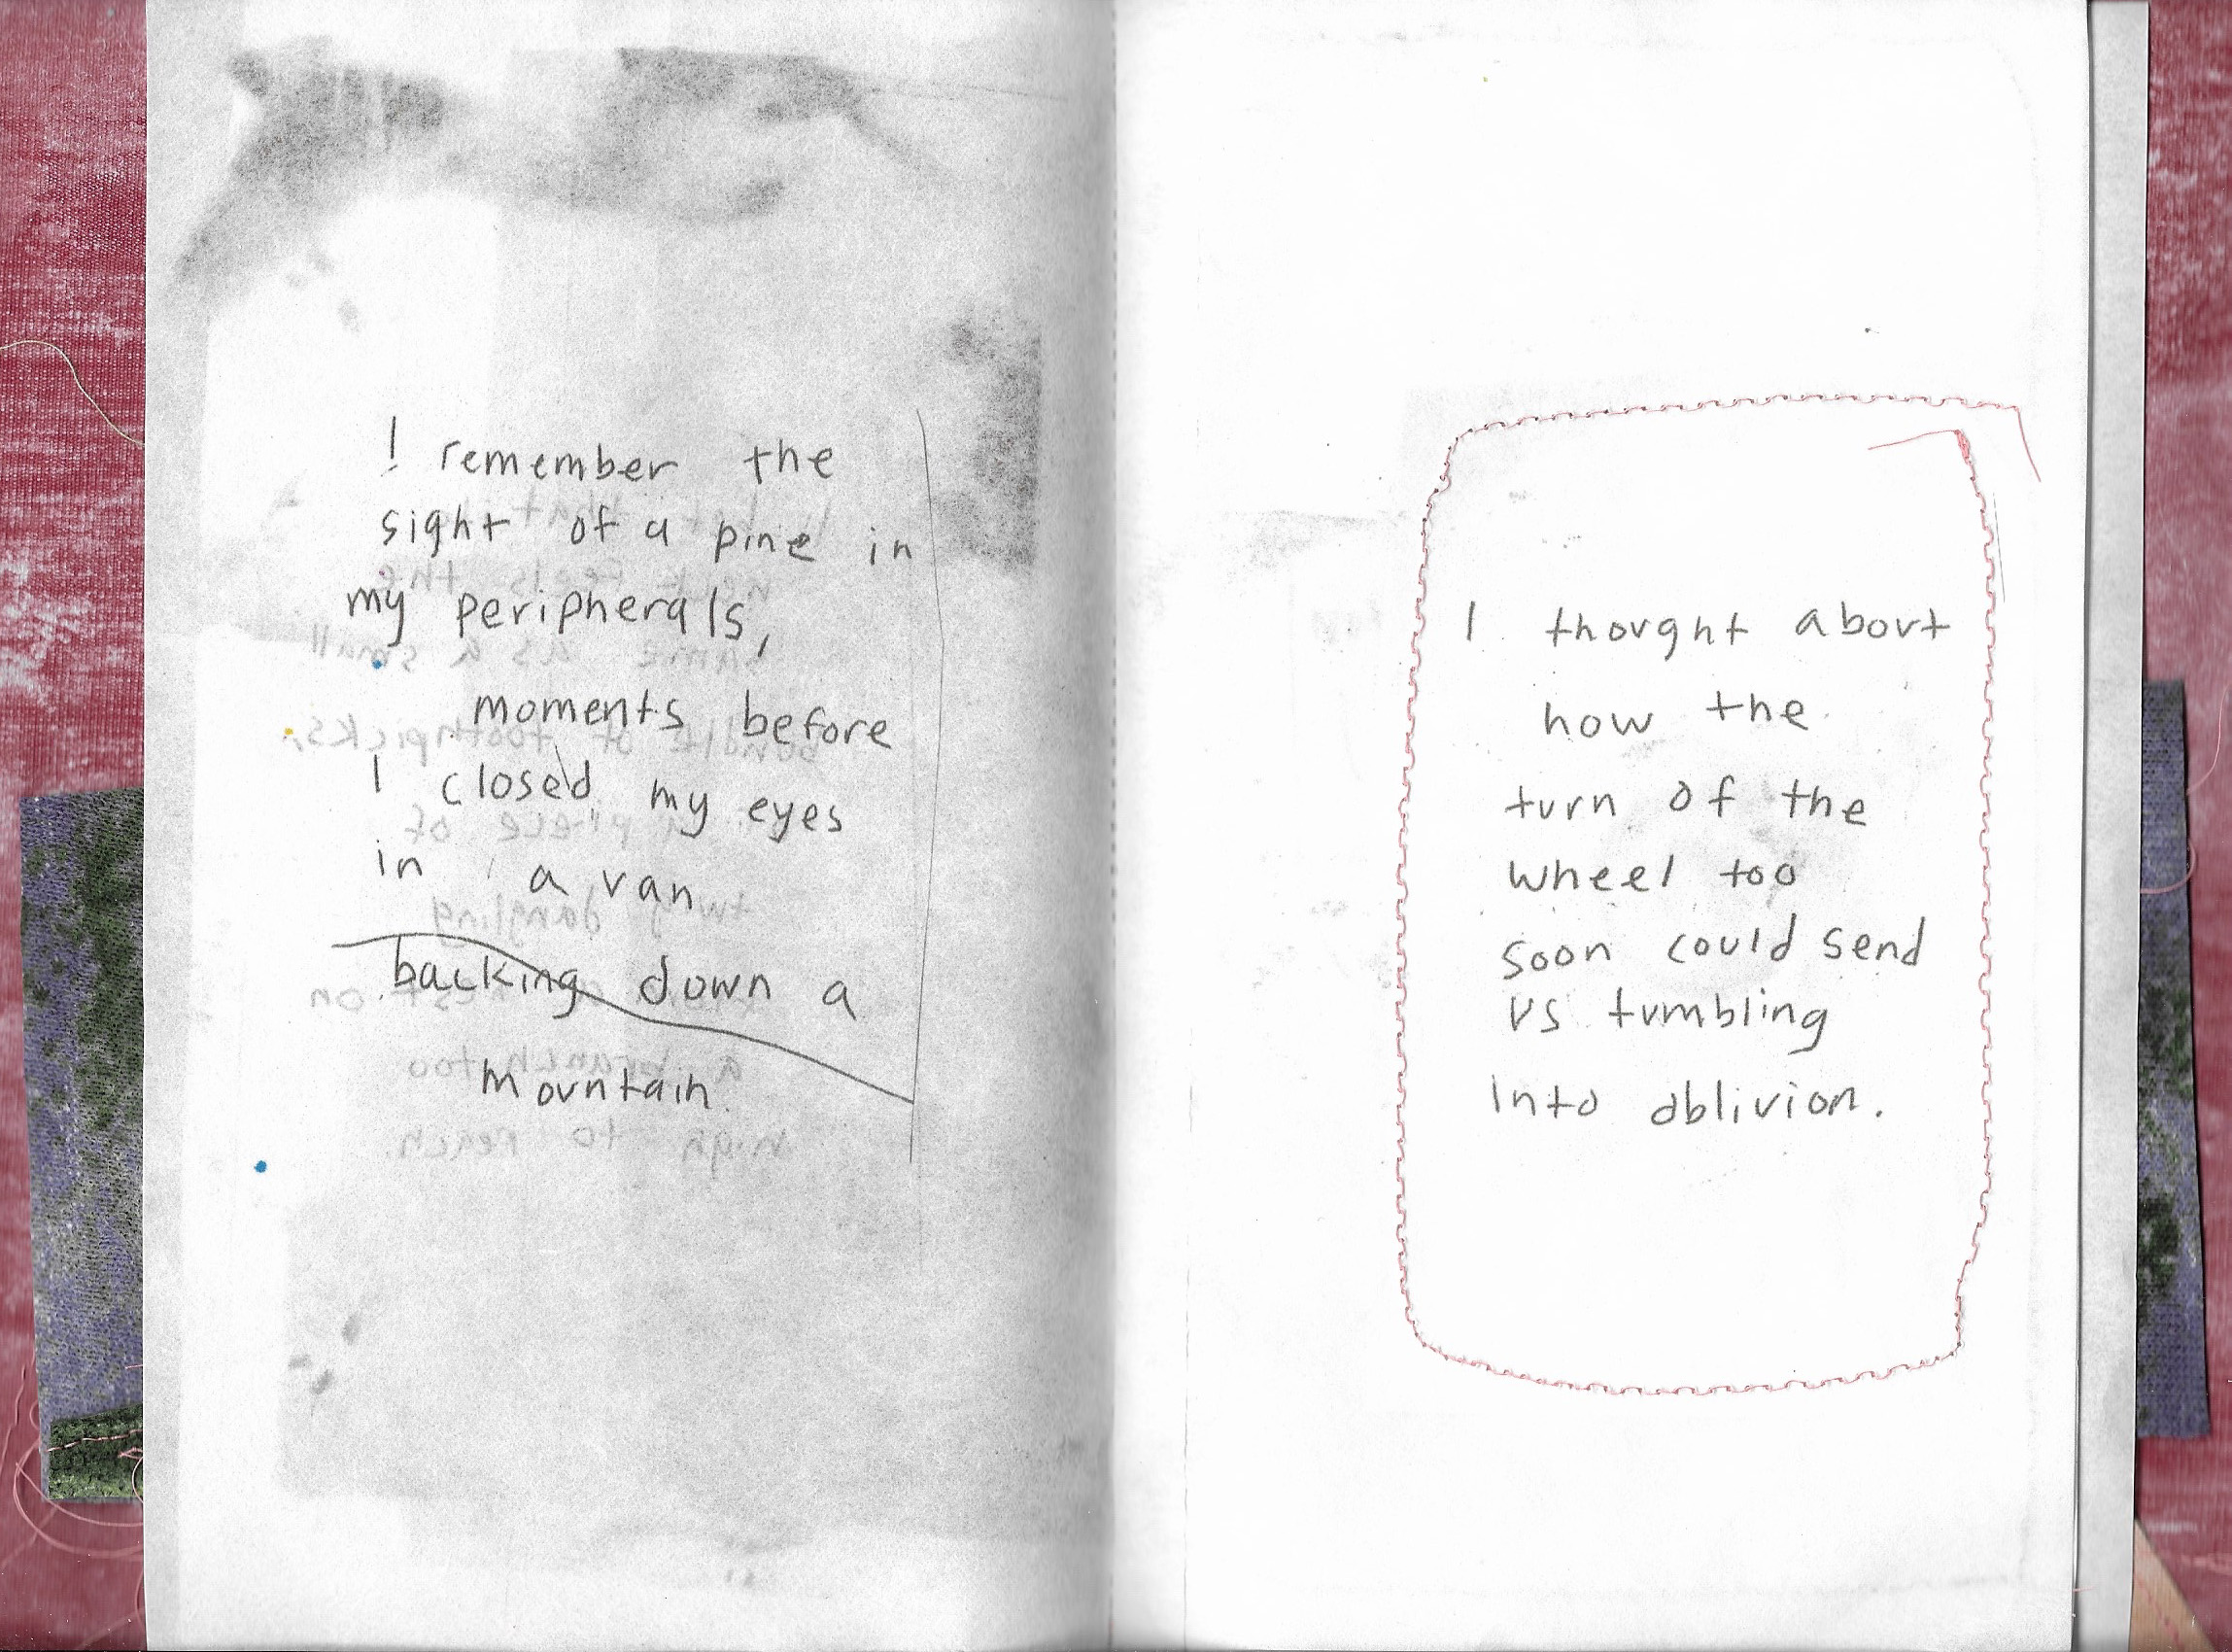 I remember the
sight of a pine in
my peripherals,
moments before
I closed my eyes
in a van
backing down a
mountain.
I thought about
how the
turn of the
wheel too
soon could send
us tumbling
into oblivion.